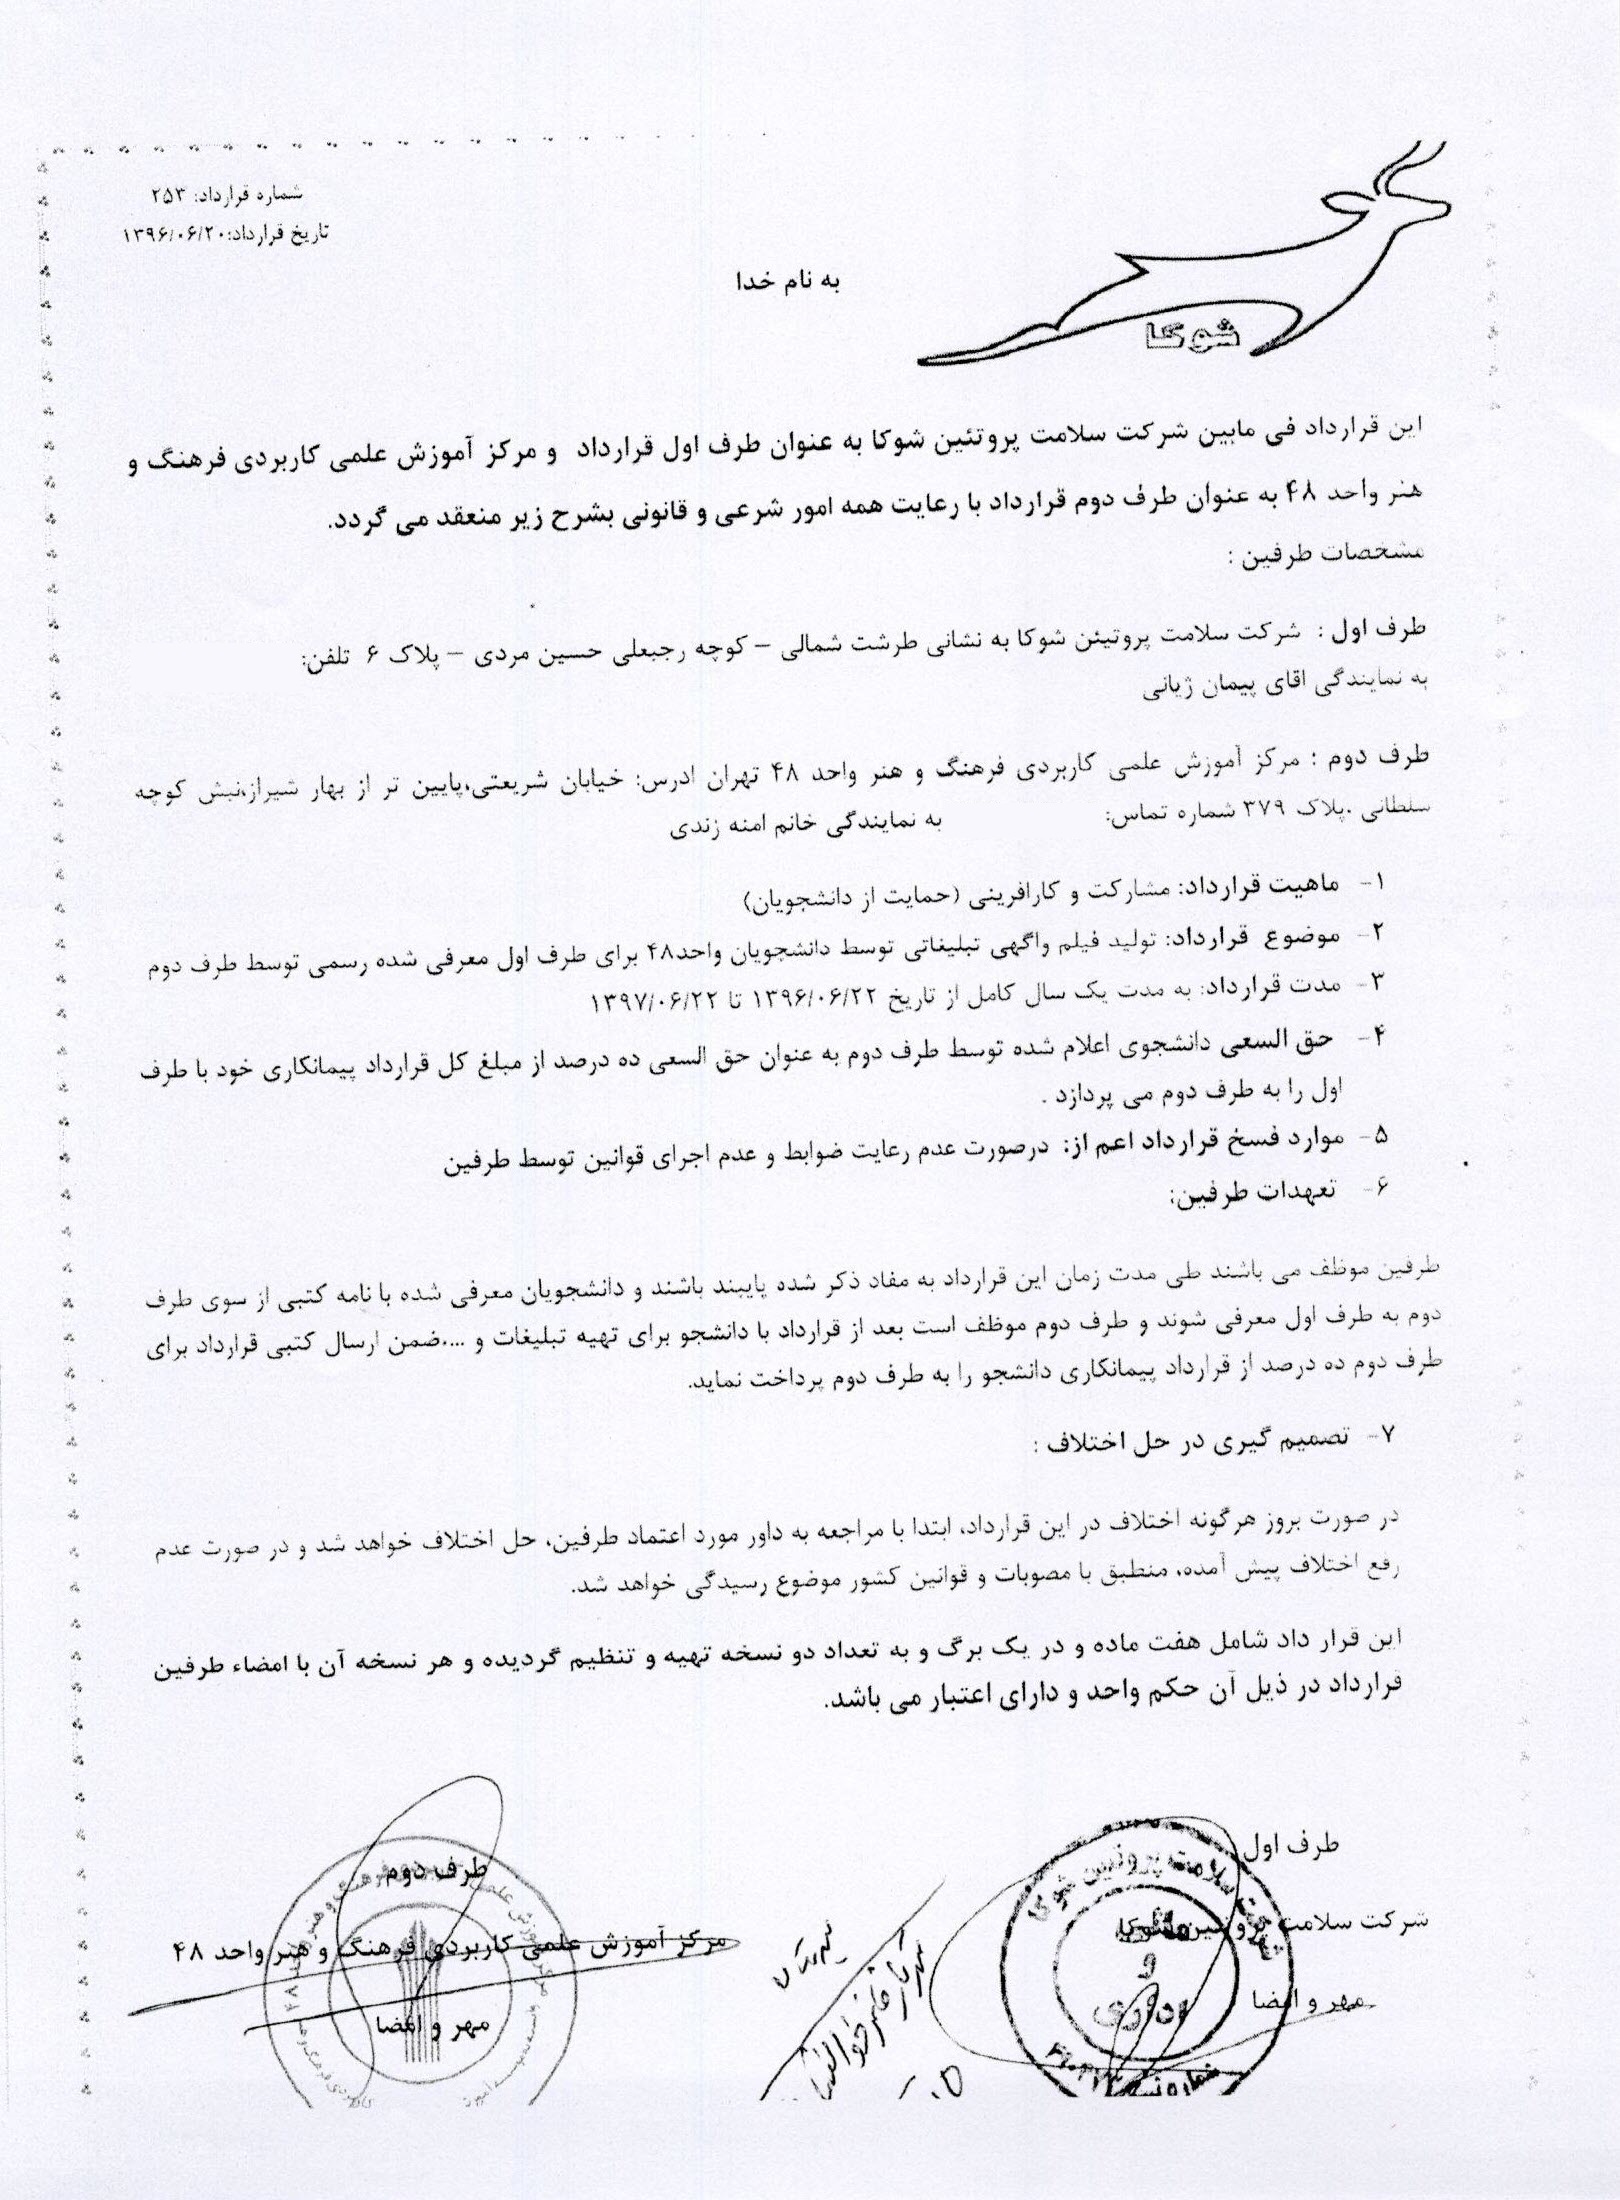 شماره قرارداد: ۲۵۳
تاریخ قرارداد:۱۳۹۶/۰۶/۲۰
به نام خدا
شوکا
این قرارداد فی مابین شرکت سلامت پروتئین شوکا به عنوان طرف اول قرارداد و مرکز آموزش علمی کاربردی فرهنگ و
هنر واحد ۴۸ به عنوان طرف دوم قرارداد با رعایت همه امور شرعی و قانونی بشرح زیر منعقد می گردد.
مشخصات طرفین :
طرف اول : شرکت سلامت پروتیئن شوکا به نشانی طرشت شمالی – کوچه رجبعلی حسین مردی – پلاک ۶ تلفن:
به نمایندگی اقای پیمان ژیانی
طرف دوم : مرکز آموزش علمی کاربردی فرهنگ و هنر واحد ۴۸ تهران ادرس: خیابان شریعتی،پایین تر از بهار شیراز،نبش کوچه
سلطانی ،پلاک ۳۷۹ شماره تماس: به نمایندگی خانم امنه زندی
۱- ماهیت قرارداد: مشارکت و کارافرینی (حمایت از دانشجویان)
۲- موضوع قرارداد: تولید فیلم واگهی تبلیغاتی توسط دانشجویان واحد۴۸ برای طرف اول معرفی شده رسمی توسط طرف دوم
۳- مدت قرارداد: به مدت یک سال کامل از تاریخ ۱۳۹۶/۰۶/۲۲ تا ۱۳۹۷/۰۶/۲۲
۴- حق السعی دانشجوی اعلام شده توسط طرف دوم به عنوان حق السعی ده درصد از مبلغ کل قرارداد پیمانکاری خود با طرف
اول را به طرف دوم می پردازد .
۵- موارد فسخ قرارداد اعم از: درصورت عدم رعایت ضوابط و عدم اجرای قوانین توسط طرفین
۶- تعهدات طرفین:
طرفین موظف می باشند طی مدت زمان این قرارداد به مفاد ذکر شده پایبند باشند و دانشجویان معرفی شده با نامه کتبی از سوی طرف
دوم به طرف اول معرفی شوند و طرف دوم موظف است بعد از قرارداد با دانشجو برای تهیه تبلیغات و ....ضمن ارسال کتبی قرارداد برای
طرف دوم ده درصد از قرارداد پیمانکاری دانشجو را به طرف دوم پرداخت نماید.
۷- تصمیم گیری در حل اختلاف :
در صورت بروز هرگونه اختلاف در این قرارداد، ابتدا با مراجعه به داور مورد اعتماد طرفین، حل اختلاف خواهد شد و در صورت عدم
رفع اختلاف پیش آمده، منطبق با مصوبات و قوانین کشور موضوع رسیدگی خواهد شد.
این قرار داد شامل هفت ماده و در یک برگ و به تعداد دو نسخه تهیه و تنظیم گردیده و هر نسخه آن با امضاء طرفین
قرارداد در ذیل آن حکم واحد و دارای اعتبار می باشد.
طرف اول
شرکت سلامت پروتئین شوکا
مهر و امضا
شرکت سلامت پروتئین شوکا
شماره ثبت
طرف دوم
مرکز آموزش علمی کاربردی فرهنگ و هنر واحد ۴۸
مهر و امضا